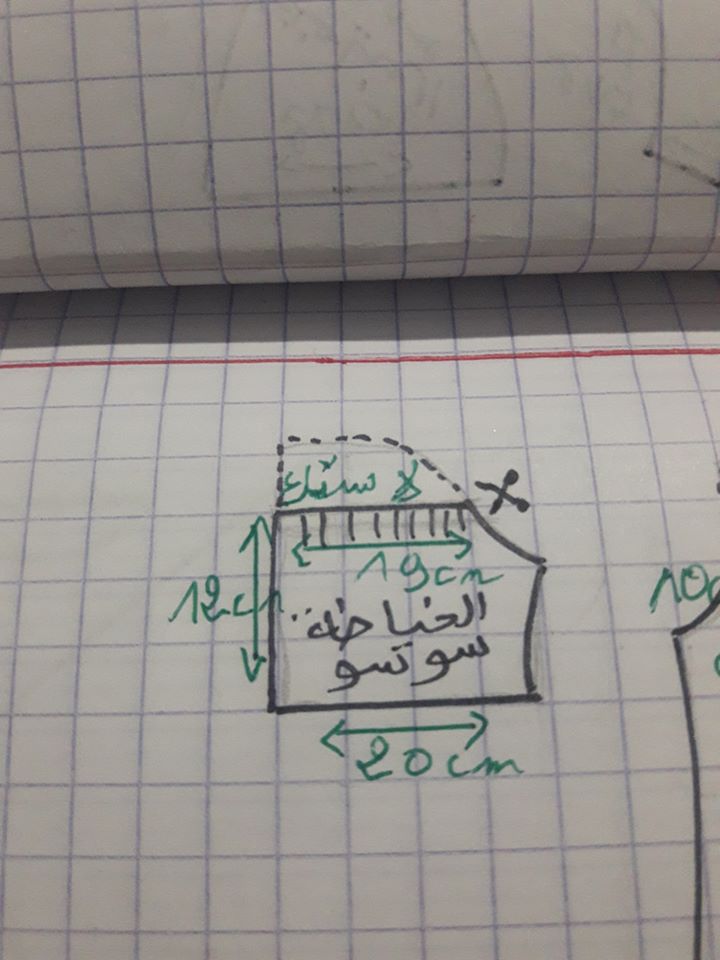 لاستيك
19cm
12cm
الخياطة
سوتسو
20cm
10c